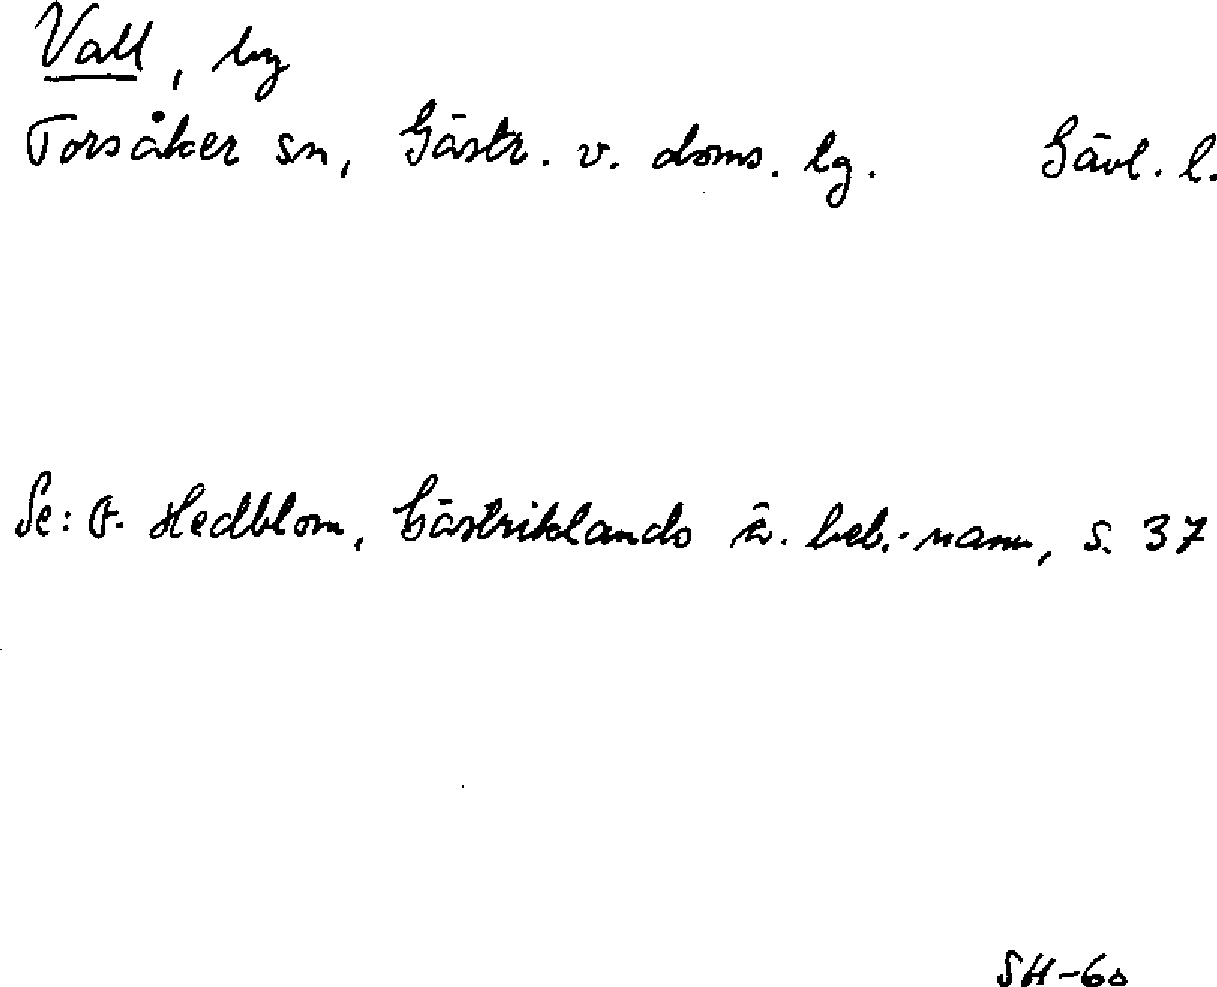 Vall, by
Torsåker sn, Gästr. v. doms. lg. Gävl. l.
Se: F. Hedblom, Gästriklands ä. beb.-namn, s. 37
SH-60